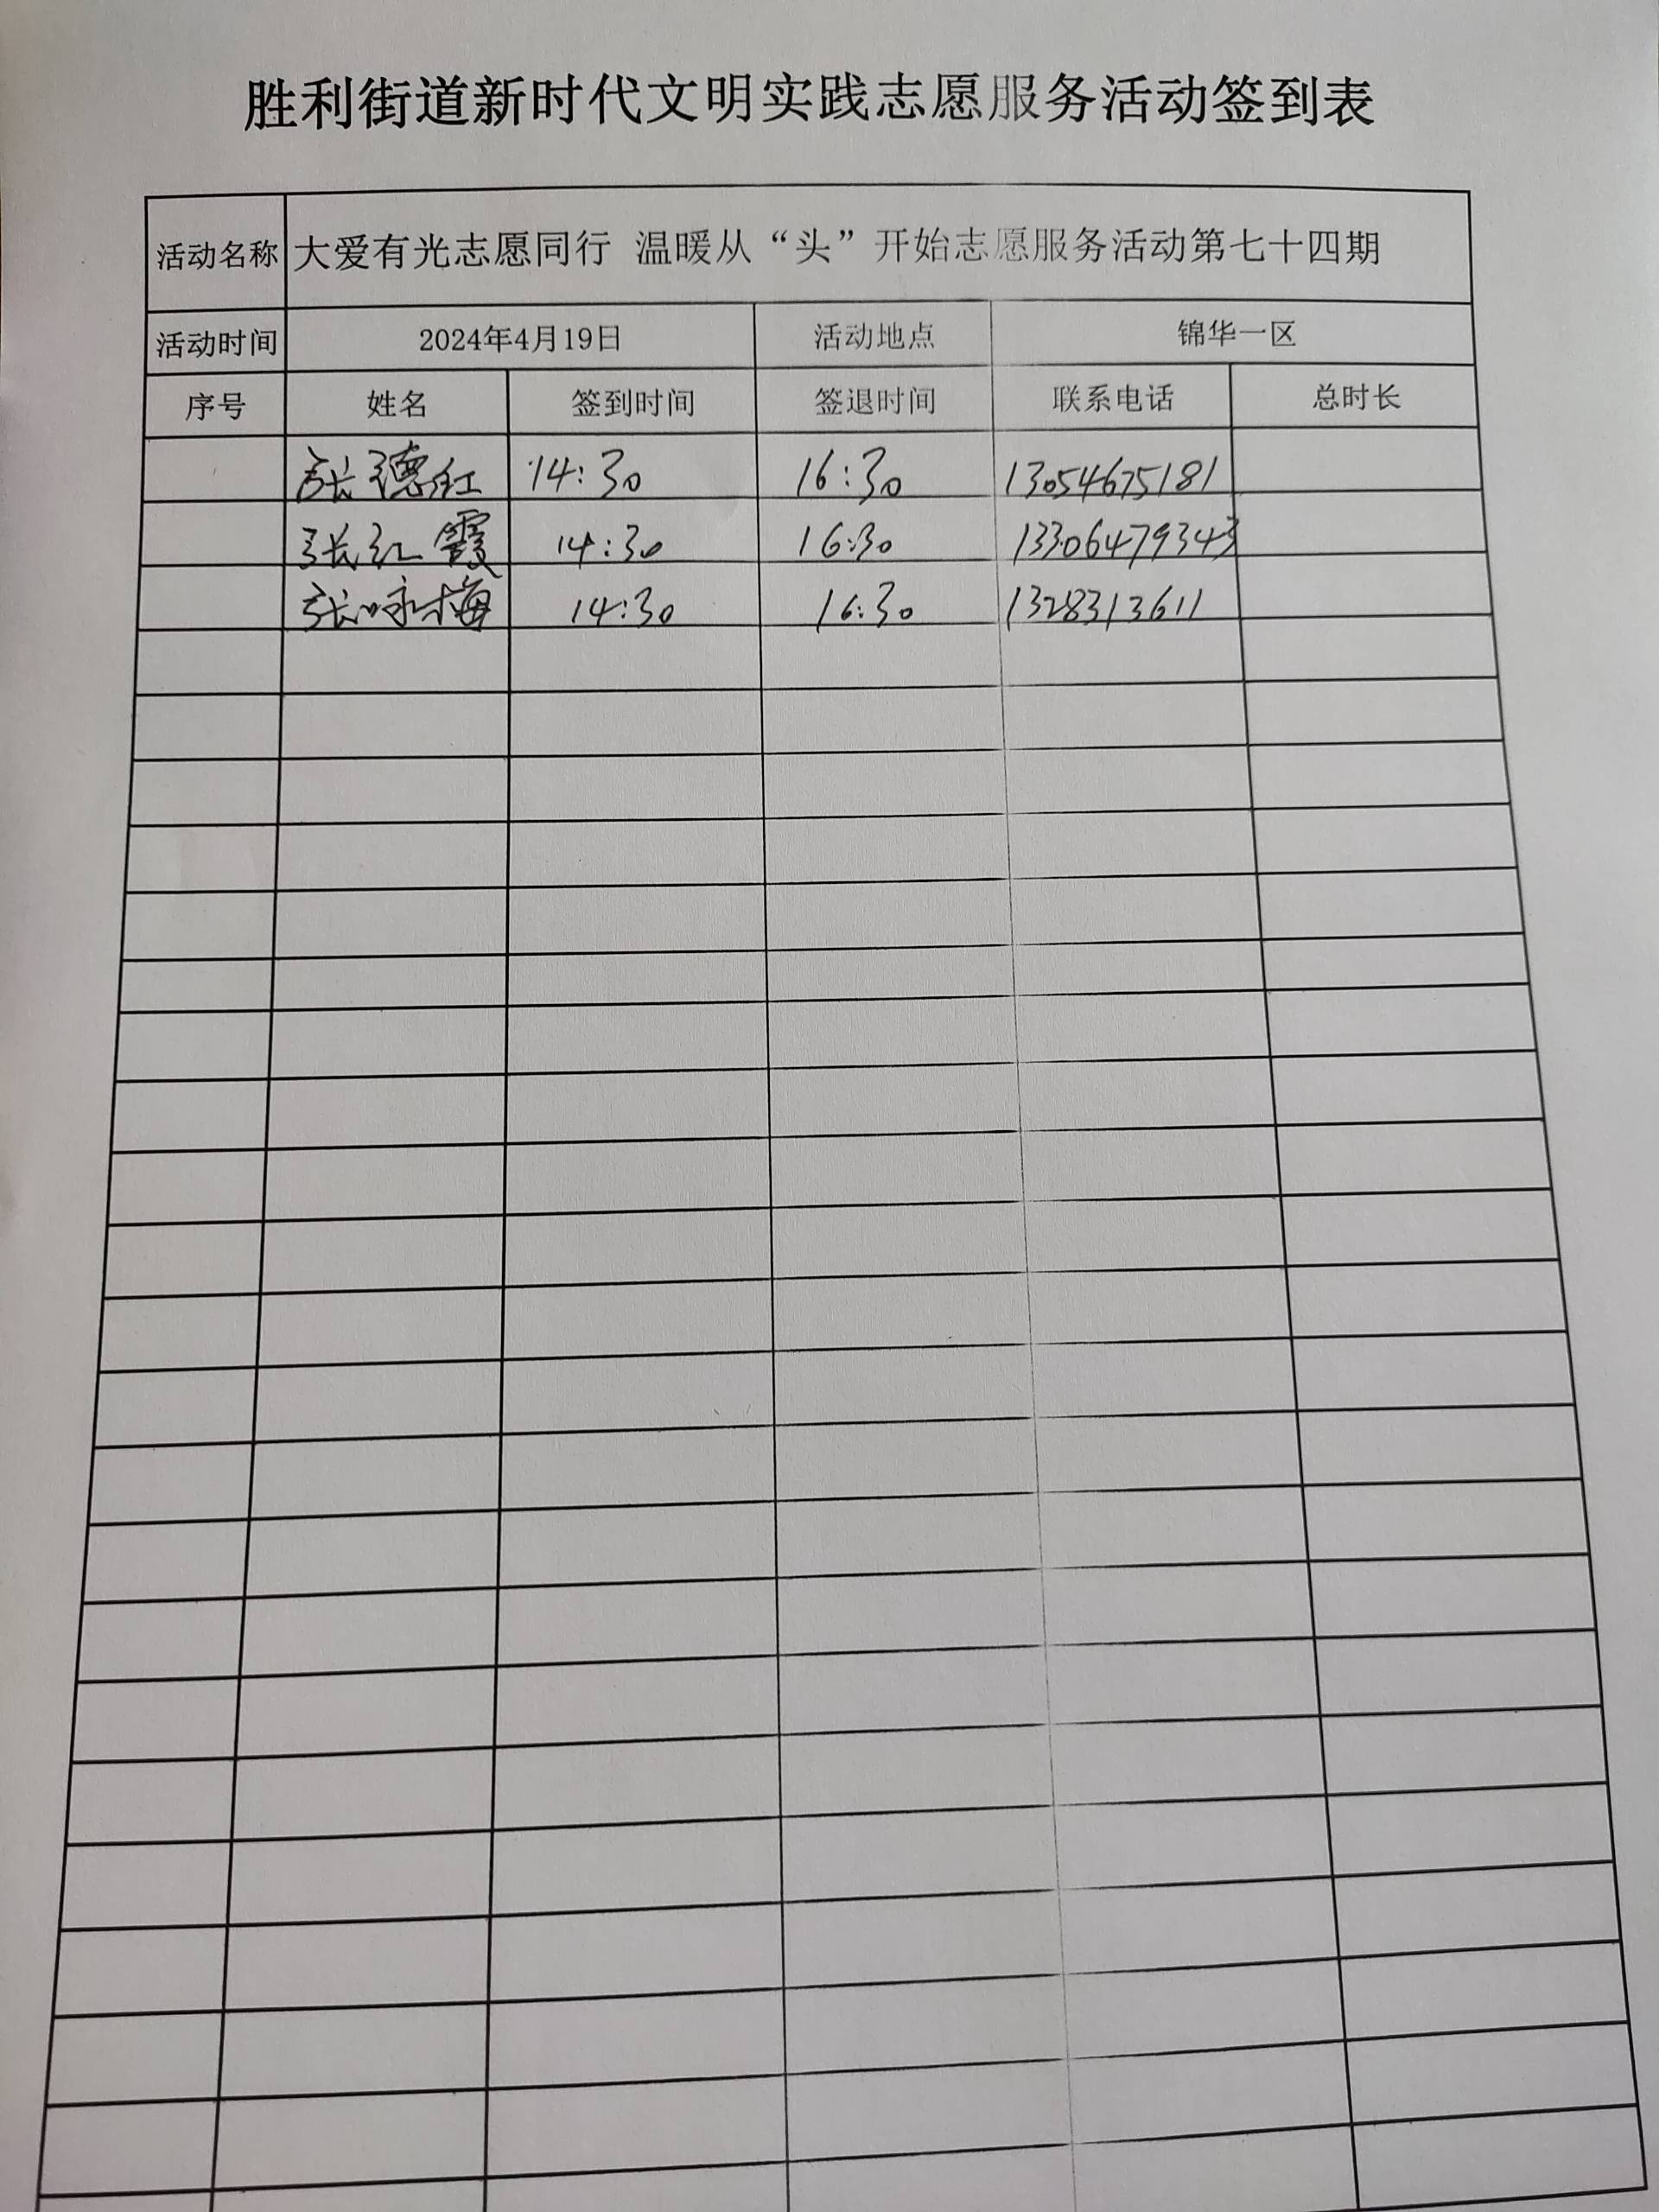 胜利街道新时代文明实践志愿服务活动签到表
活动名称 大爱有光志愿同行 温暖从“头”开始志愿服务活动第七十四期
活动时间 2024年4月19日 活动地点 锦华一区
序号 姓名 签到时间 签退时间 联系电话 总时长
张德红 14:30 16:30 13054675181
张红霞 14:30 16:30 13306479343
张咏梅 14:30 16:30 1328313611